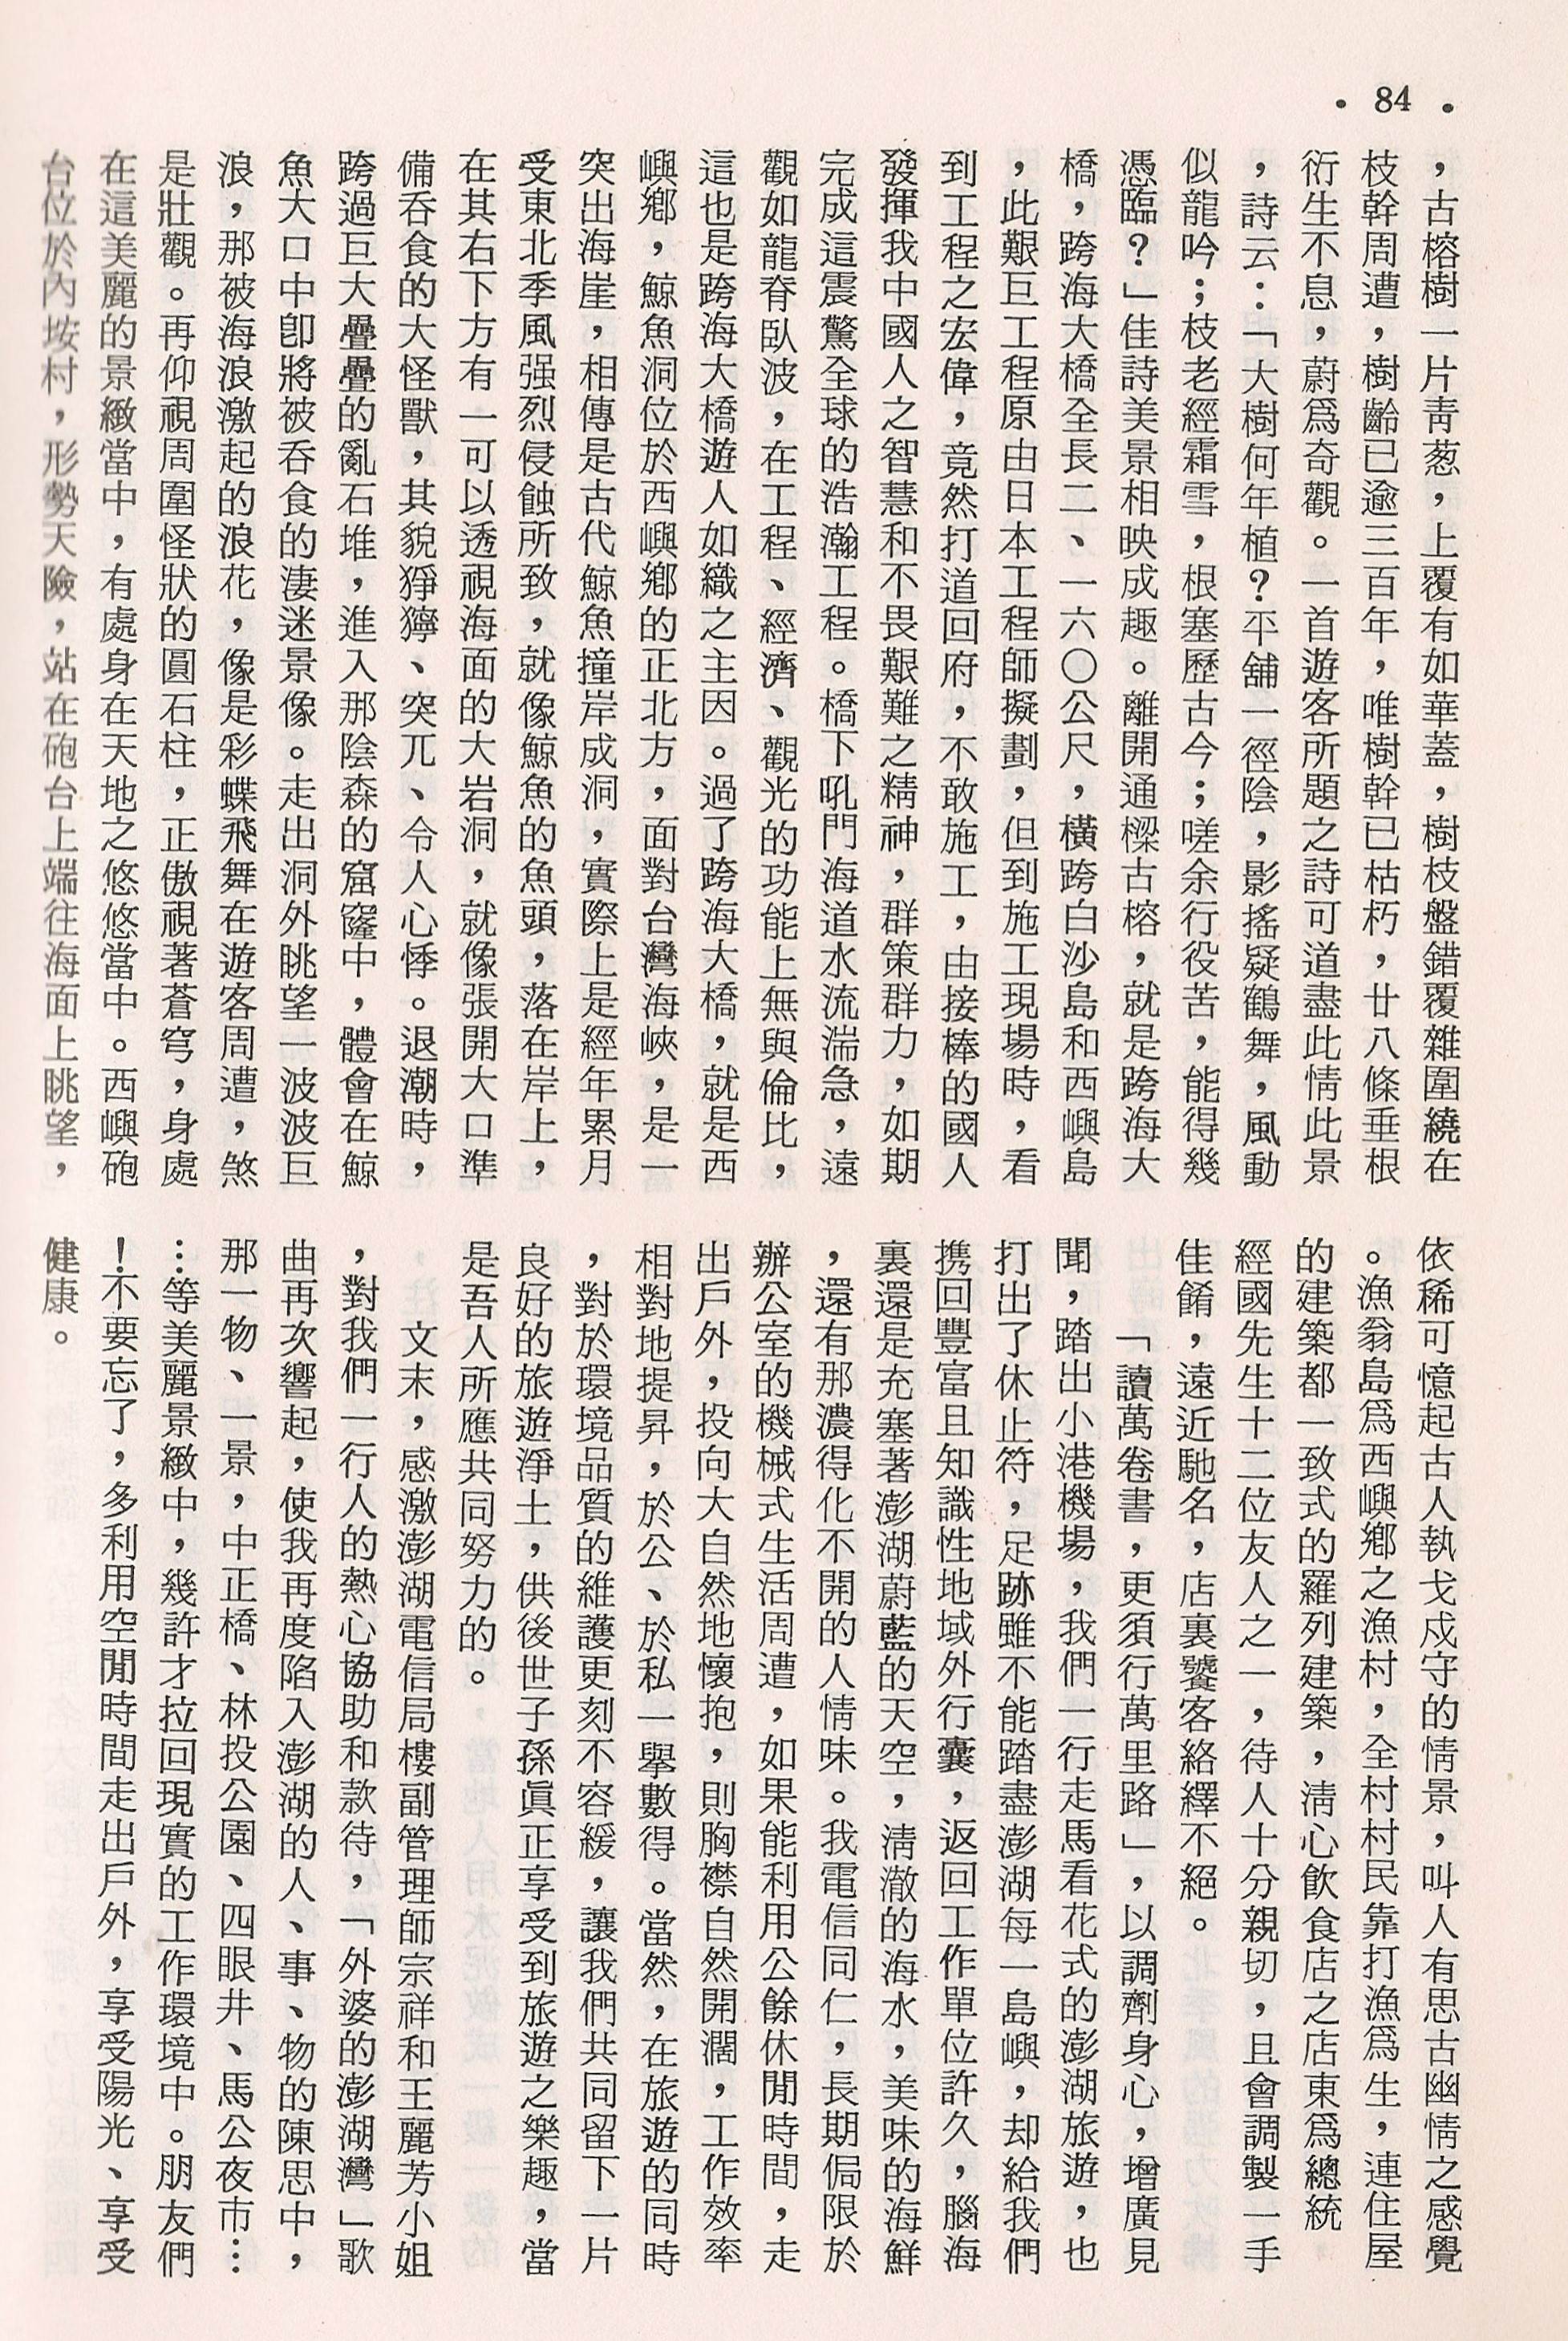 • 84 •
，古榕樹一片靑葱，上覆有如華蓋，樹枝盤錯覆雜圍繞在
枝幹周遭，樹齡已逾三百年，唯樹幹已枯朽，廿八條垂根
衍生不息，蔚爲奇觀。一首遊客所題之詩可道盡此情此景
，詩云：「大樹何年植？平舖一徑陰，影搖疑鶴舞，風動
似龍吟；枝老經霜雪，根塞歷古今；嗟余行役苦，能得幾
憑臨？」佳詩美景相映成趣。離開通樑古榕，就是跨海大
橋，跨海大橋全長二、一六〇公尺，橫跨白沙島和西嶼島
，此艱巨工程原由日本工程師擬劃，但到施工現場時，看
到工程之宏偉，竟然打道回府，不敢施工，由接棒的國人
發揮我中國人之智慧和不畏艱難之精神，群策群力，如期
完成這震驚全球的浩瀚工程。橋下吼門海道水流湍急，遠
觀如龍脊臥波，在工程、經濟、觀光的功能上無與倫比，
這也是跨海大橋遊人如織之主因。過了跨海大橋，就是西
嶼鄉，鯨魚洞位於西嶼鄉的正北方，面對台灣海峽，是一
突出海崖，相傳是古代鯨魚撞岸成洞，實際上是經年累月
受東北季風强烈侵蝕所致，就像鯨魚的魚頭，落在岸上，
在其右下方有一可以透視海面的大岩洞，就像張開大口準
備吞食的大怪獸，其貌猙獰、突兀、令人心悸。退潮時，
跨過巨大疊疊的亂石堆，進入那陰森的窟窿中，體會在鯨
魚大口中卽將被吞食的淒迷景像。走出洞外眺望一波波巨
浪，那被海浪激起的浪花，像是彩蝶飛舞在遊客周遭，煞
是壯觀。再仰視周圍怪狀的圓石柱，正傲視著蒼穹，身處
在這美麗的景緻當中，有處身在天地之悠悠當中。西嶼砲
台位於內垵村，形勢天險，站在砲台上端往海面上眺望，
依稀可憶起古人執戈戍守的情景，叫人有思古幽情之感覺
。漁翁島爲西嶼鄉之漁村，全村村民靠打漁爲生，連住屋
的建築都一致式的羅列建築，淸心飲食店之店東爲總統
經國先生十二位友人之一，待人十分親切，且會調製一手
佳餚，遠近馳名，店裏饕客絡繹不絕。
「讀萬卷書，更須行萬里路」，以調劑身心，增廣見
聞，踏出小港機場，我們一行走馬看花式的澎湖旅遊，也
打出了休止符，足跡雖不能踏盡澎湖每一島嶼，却給我們
携回豐富且知識性地域外行囊，返回工作單位許久，腦海
裏還是充塞著澎湖蔚藍的天空，淸澈的海水，美味的海鮮
，還有那濃得化不開的人情味。我電信同仁，長期侷限於
辦公室的機械式生活周遭，如果能利用公餘休閒時間，走
出戶外，投向大自然地懷抱，則胸襟自然開濶，工作效率
相對地提昇，於公、於私一擧數得。當然，在旅遊的同時
，對於環境品質的維護更刻不容緩，讓我們共同留下一片
良好的旅遊淨土，供後世子孫眞正享受到旅遊之樂趣，當
是吾人所應共同努力的。
文末，感激澎湖電信局樓副管理師宗祥和王麗芳小姐
，對我們一行人的熱心協助和款待，「外婆的澎湖灣」歌
曲再次響起，使我再度陷入澎湖的人、事、物的陳思中，
那一物、一景，中正橋、林投公園、四眼井、馬公夜市…
…等美麗景緻中，幾許才拉回現實的工作環境中。朋友們
！不要忘了，多利用空閒時間走出戶外，享受陽光、享受
健康。